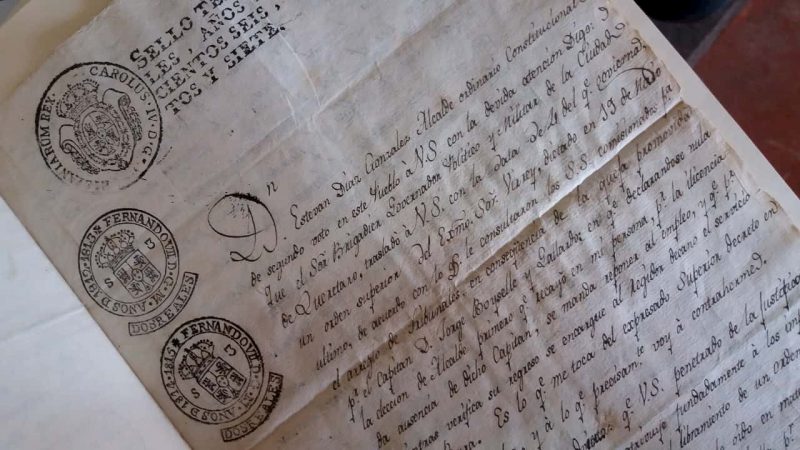 SELLO TE
LES, AÑOS
CIENTOS SEIS,
TOS Y SIETE.
CAROLUS IV D.G. HISPANIARUM REX
FERNANDO VII. D. G. AÑOS D 1812 Y 1813
DOS REALES
FERNANDO VII. D. G. AÑOS D 1814 Y 1815
DOS REALES
Dn Estevan Díaz Gonzales Alcalde ordinario Constitucional
de segundo voto en este Pueblo á V.S. con la devida atencion Digo:
que el Sor Brigadier Governador Político y Militar de la Ciudad
de Queretaro, trasladó á V.S. con la data de 18 del qe. govierna
un orden superior del Exmo. Sor. Virrey, dictado en 19 de
ultimo, de acuerdo con lo qe. le consultaron los S.S. comisionados
el arreglo de Tribunales en conseqüencia de la queja promovida
pr. el Capitan D. Jorge y Gallardo en qe. declarandose nula
la eleccion de Alcalde primero qe. recayó en mi persona, pr. la licencia
da ausencia de dicho Capitan, se manda reponer al empleo, y qe. pr.
verifica su regreso se encargue al regidor dicano el servicio
Es lo qe. me toca del expresado Superior Decreto en
y á lo qe. precisamte. voy á contraherme.
qe. V.S. penetrado de la
fundadamente á los
libramiento de un orden
oido en